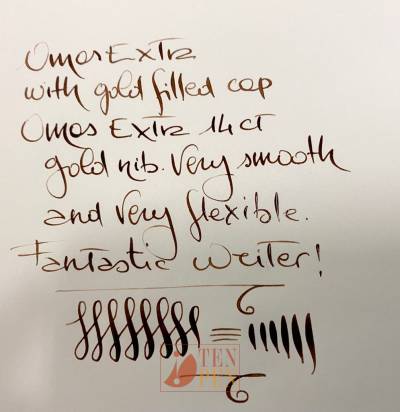 Omas Extra
with gold filled cap
Omas Extra 14 ct
gold nib. Very smooth
and very flexible.
Fantastic writer!
TEN
PEN